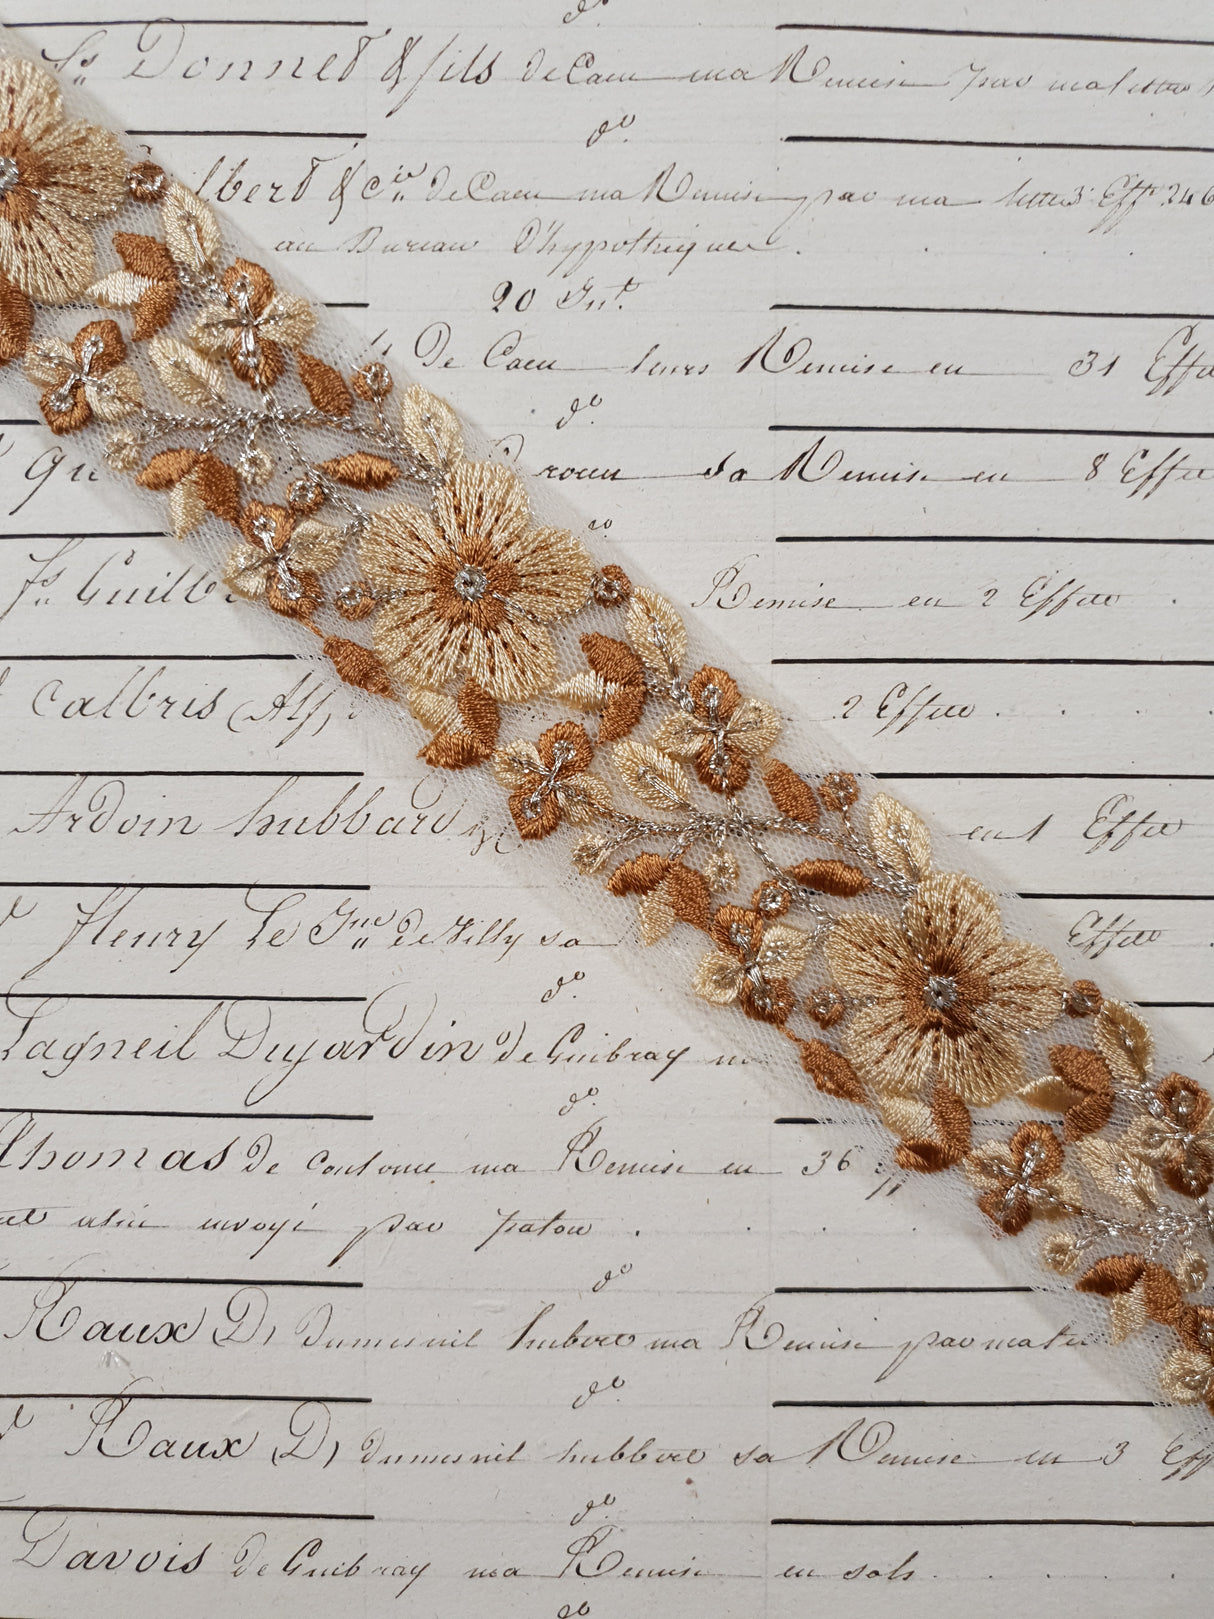 do
Donnet & fils de Caen ma Remise par ma lettre
do
lbert & Cie de Caen ma Remise par ma lettre 3 Effts 246
au Bureau D'hypothèques
20 Jnt
De Caen leurs Remise en 31 Effets
do
sa Remise en 8 Effets
do
Guilb Remise en 2 Effets
Calbris (Alf) 2 Effets
Ardoin hubbard & en 1 Effet
fleury Le Jne De Tilly sa Effets
do
Lagneil Dujardin de Guibray m
do
Thomas De ma Remise en 36
envoyé par
do
Raux D, Dumesnil hubert ma Remise par ma
do
Raux D, Dumesnil hubbert sa Remise en 3 Eff
do
Davois de Guibray ma Remise en sols
do